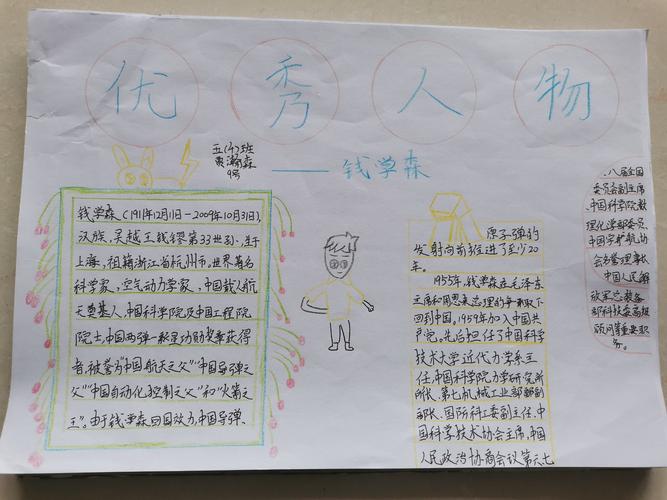 优秀人物
五(4)班
9号
——钱学森
钱学森(1911年12月11日-2009年10月31日),
汉族,吴越王钱镠第33世孙,生于
上海,祖籍浙江省杭州市。世界著名
科学家、空气动力学家、中国载人航
天奠基人,中国科学院及中国工程院
院士,中国两弹一星功勋奖章获得
者,被誉为"中国航天之父""中国导弹之
父""中国自动化控制之父"和"火箭之
王"。由于钱学森回国效力,中国导弹、
原子弹的
发射向前推进了至少20
年。
1955年,钱学森在毛泽东
主席和周恩来总理的争取下
回到中国。1959年加入中国共
产党。先后担任了中国科学
技术大学近代力学系主
任,中国科学院力学研究所
所长、第七机械工业部副部
部长、国防科工委副主任、中
国科学技术协会主席、中国
人民政治协商会议第六七
、八届全国
委员会副主席
中国科学院数
理化学部委员、
中国宇航协
会名誉理事长
中国人民解
放军总装备
部科技委高级
顾问等重要职
务。